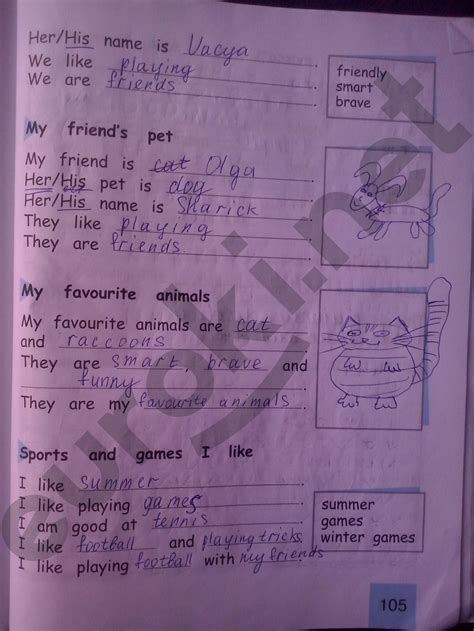 Her/His name is Vacya.
We like playing.
We are friends.
friendly
smart
brave
My friend's pet
My friend is cat Olga.
Her/His pet is dog.
Her/His name is Sharick.
They like playing.
They are friends.
My favourite animals
My favourite animals are cat
and raccoons.
They are smart, brave and
funny.
They are my favourite animals.
Sports and games I like
I like summer.
I like playing games.
I am good at tennis.
I like football and playing tricks.
I like playing football with my friends
summer
games
winter games
105
euroki.net